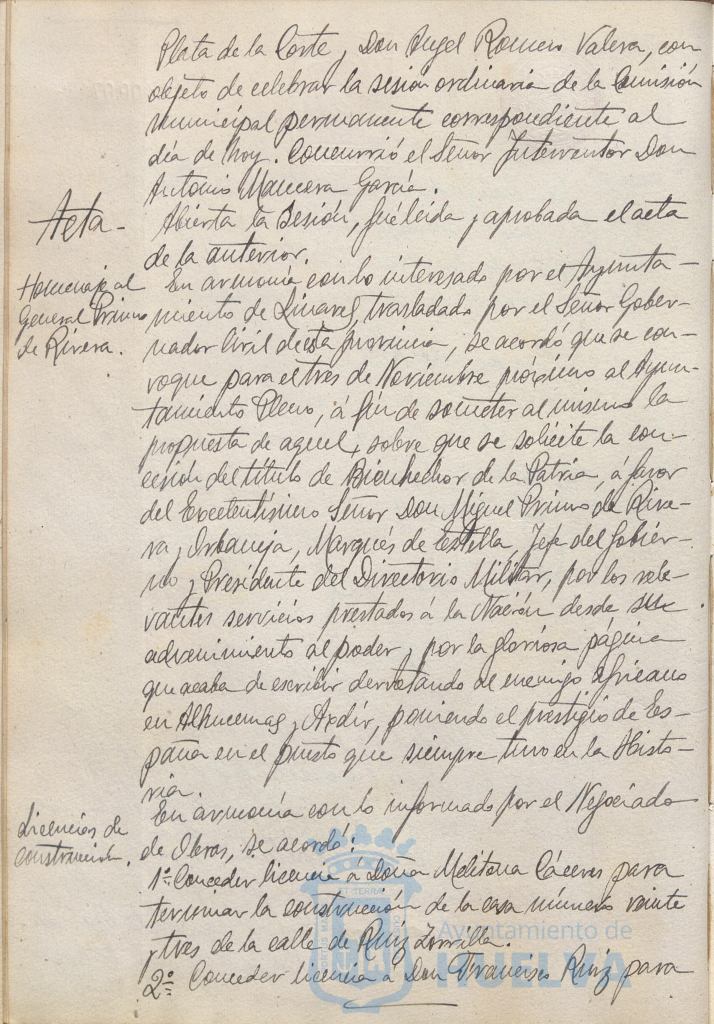 Plata de la Corte y Don Angel Romero Valera, con
objeto de celebrar la sesión ordinaria de la Comisión
municipal permanente correspondiente al
día de hoy. Concurrió el Señor Interventor Don
Antonio Mancera García.
Acta-
Abierta la Sesión, fué leída y aprobada el acta
de la anterior.
Homenaje al
General Primo
de Rivera.
En armonía con lo interesado por el Ayunta-
miento de Linares, trasladado por el Señor Gober-
nador Civil de esta provincia, se acordó que se con-
voque para el tres de Noviembre próximo al Ayun-
tamiento Pleno, á fin de someter al mismo la
propuesta de aquel, sobre que se solicite la con-
cesión del título de Bienhechor de la Patria, á favor
del Excelentísimo Señor Don Miguel Primo de Rive-
ra y Orbaneja, Marqués de Estella, Jefe del Gobier-
no y Presidente del Directorio Militar, por los rele-
vantes servicios prestados á la Nación desde su
advenimiento al poder y por la gloriosa página
que acaba de escribir derrotando al enemigo africano
en Alhucemas y Axdir, poniendo el prestigio de Es-
paña en el puesto que siempre tuvo en la Histo-
ria.
Licencias de
construcción.
En armonía con lo informado por el Negociado
de Obras, se acordó:
1º Conceder licencia á Doña Melitona Cáceres para
terminar la construcción de la casa número veinte
y tres de la calle de Ruiz Zorrilla.
2º Conceder licencia á Don Francisco Ruiz para
Ayuntamiento de
HUELVA